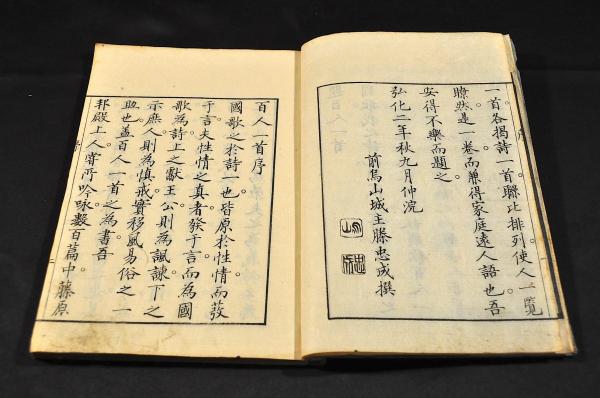 一首各揭詩一首聯比排列使人一覽
瞭然達一卷而兼得家庭遠人語也吾
安得不樂而題之
弘化二年秋九月仲浣
前烏山城主滕忠成撰
百人一首序
國歌之於詩一也皆原於性情而發
于言夫性情之真者發于言而為國
歌為詩上之獻王公則為諷諫下之
示庶人則為慎戒實移風易俗之一
助也盖百人一首之為書吾
邦殿上人嘗所吟詠數百篇中藤原